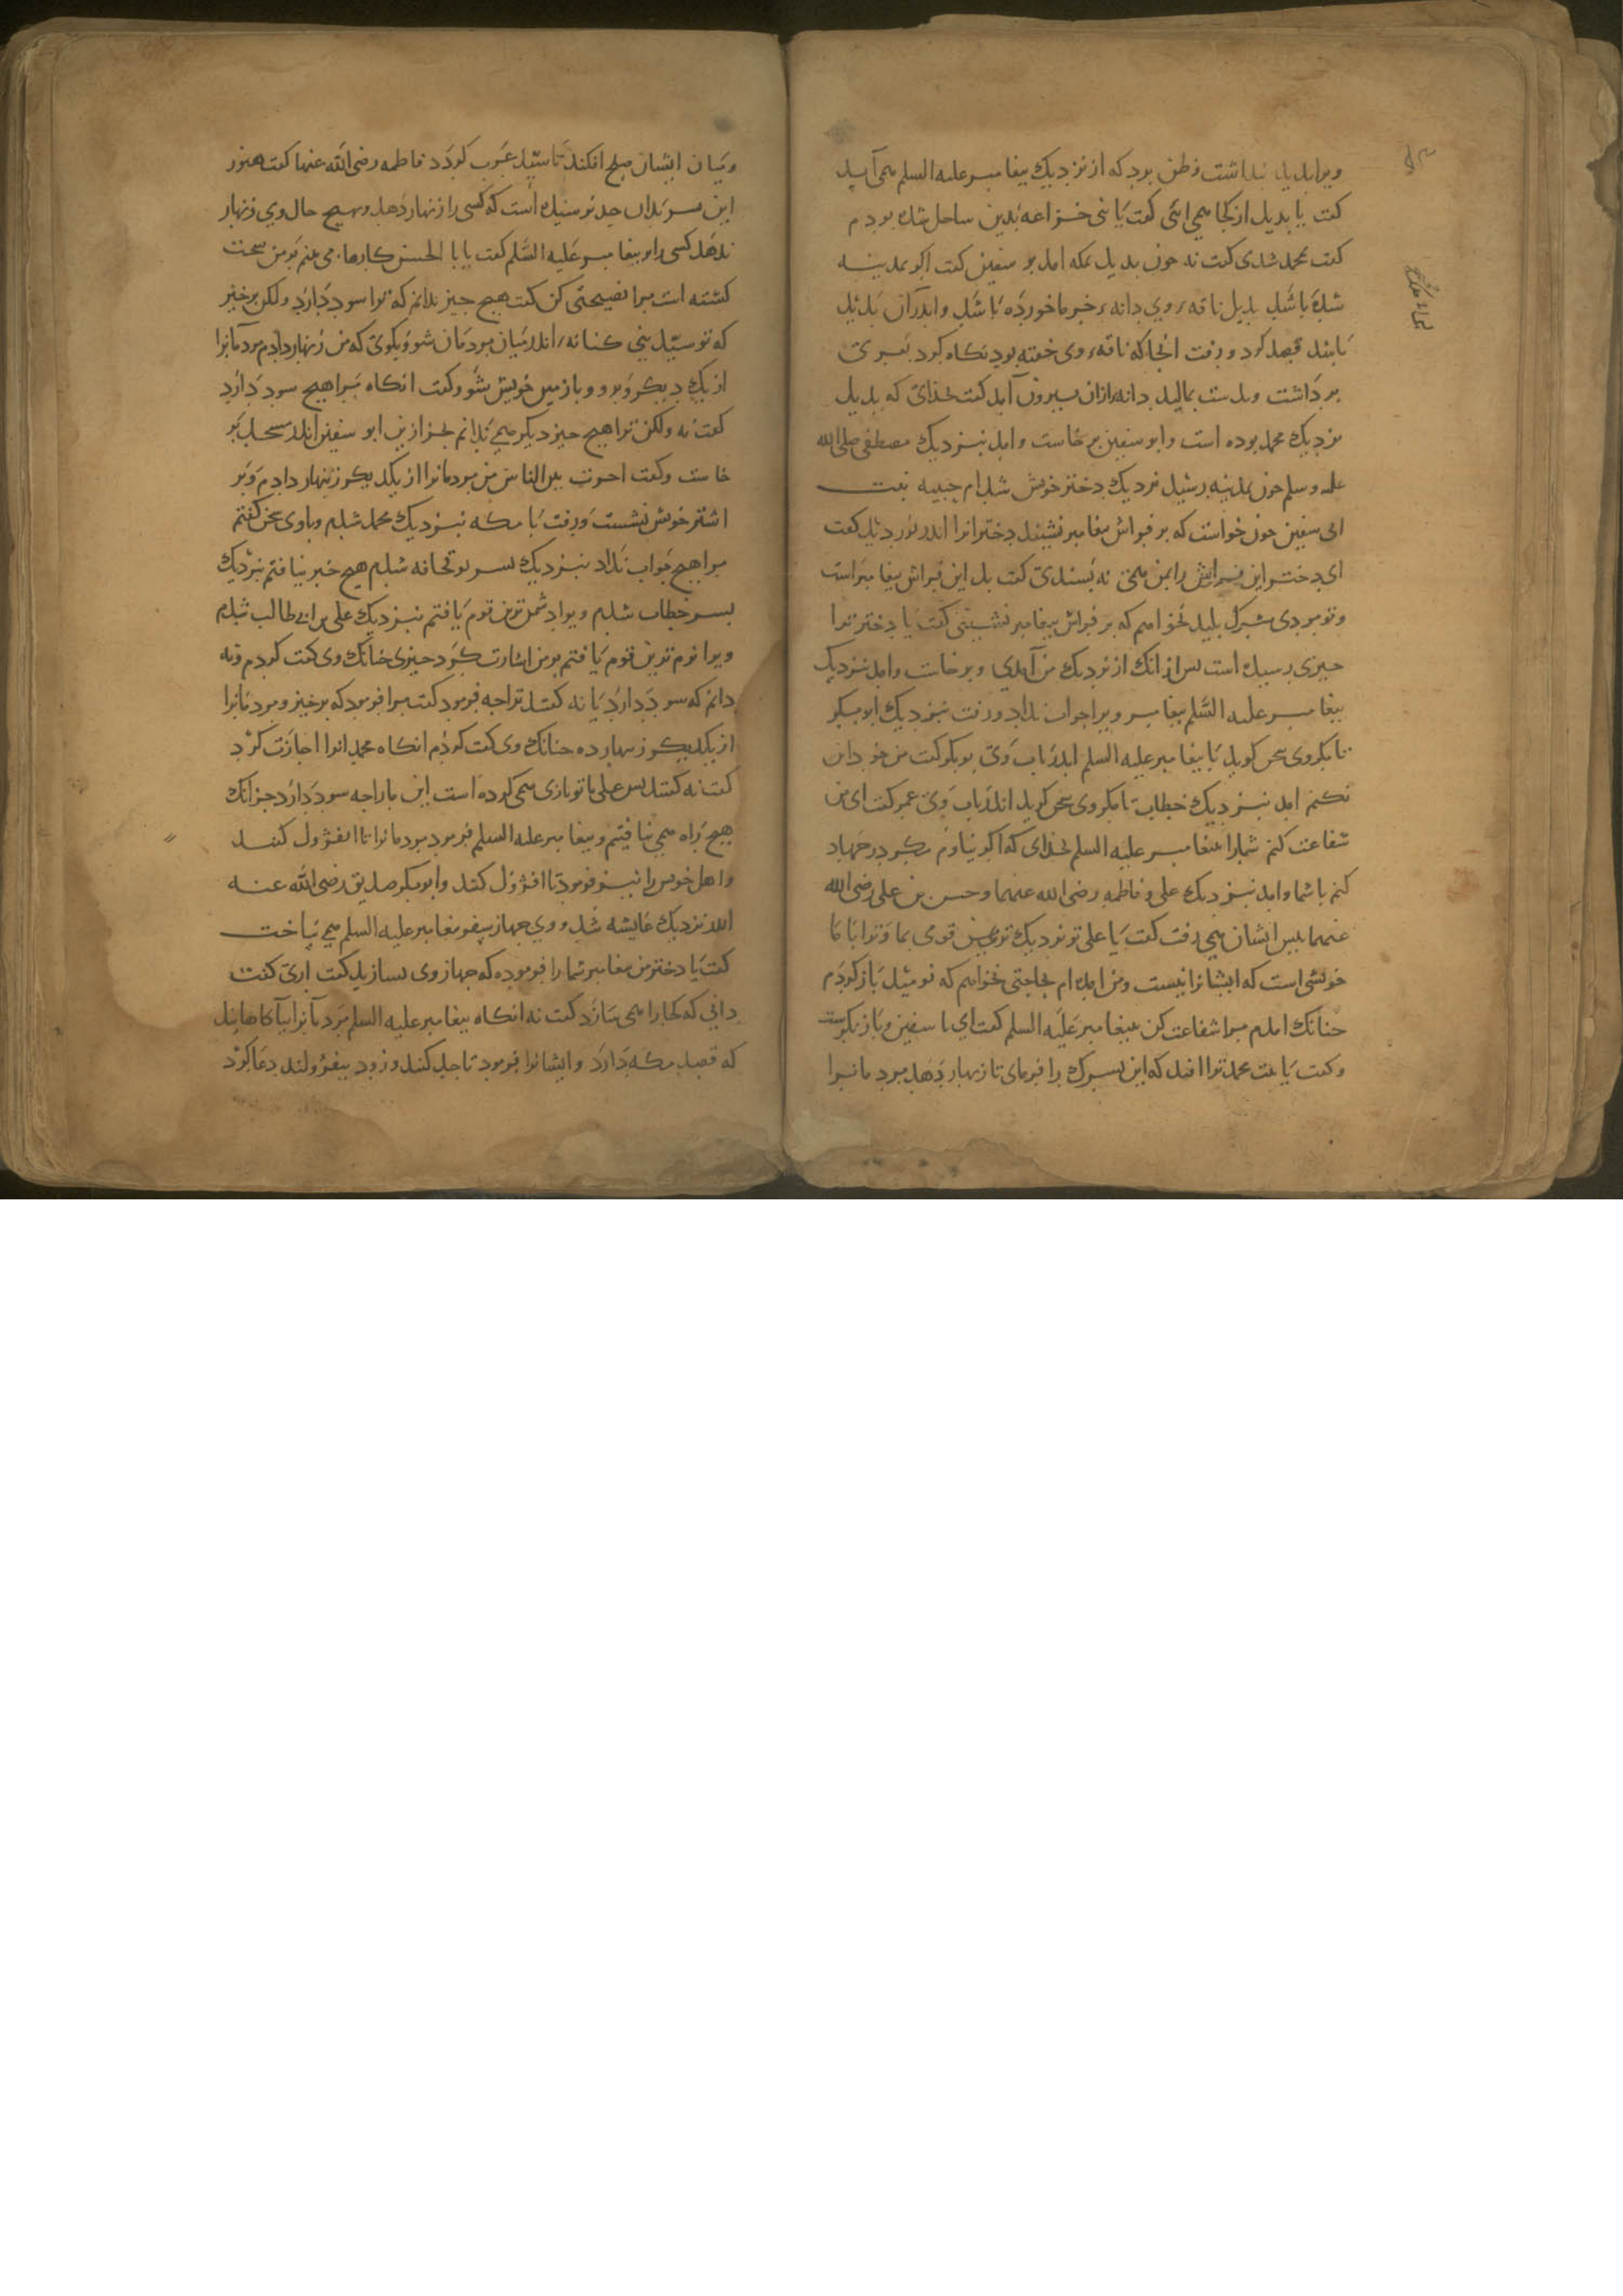 ویرا بدیل بنداشت وظن برد که از نزدیک بیغامبر علیه السلم همی آید
کفت یا بدیل از کجا همی ائی کفت با بنی خزاعه بدین ساحل شده بودم
کفت بمحمد شدی کفت نه جون بدیل بمکه امد بو سفین کفت اکر بمدینه
شده باشد بدیل ناقهٔ وی دانهٔ خرما خورده باشد واندران بدید
بابند قصد کرد ورفت انجا که ناقهٔ وی خفته بود نکاه کرد بعری
برداشت وبدست بمالید دانه ازان بیرون آمد کفت بخدای که بدیل
نزدیک محمد بوده است وابو سفین برخاست وامد بنزدیک مصطفی صلی الله
علیه وسلم جون بمدینه رسید نزدیک دختر خویش شد ام حبیبه بنت
ابی سفین جون خواست که بر فراش بیغامبر نشیند دختر انرا اندر نوردید کفت
ای دختر این فراش را بمن همی نه بسندی کفت بل این فراش بیغامبراست
وتو مردی مشرک بلید نخواهم که بر فراش بیغامبر نشینی کفت یا دختر ترا
جیزی رسیده است بس ازانک از نزدیک من آمدی وبرخاست وامد بنزدیک
بیغامبر علیه السلم بیغامبر ویرا جواب نداد ورفت بنزدیک ابوبکر
تا بکروی سخن کوید با بیغامبر علیه السلم اندر باب وی بوبکر کفت من خود این
نکنم امد بنزدیک خطاب تا مکر وی سخن کوید اندر باب وی عمر کفت ای من
شفاعت کنم شمارا ببیغامبر علیه السلم بخدای که اکر نیاوم مکر درخهاد
کنم باشما وامد بنزدیک علی وفاطمه رضی الله عنهما وحسن بن علی رضی الله
عنهما بیش ایشان همی رفت کفت یا علی تو نزدیک ترین قومی بما وترا باما
خویشی است که ایشانرا نیست ومن امده ام بحاجتی نخواهم که نومید باز کردم
جنانک امدم مرا شفاعت کن ببیغامبر علیه السلم کفت ای با سفین وباز نکرست
وکفت یا بنت محمد ترا افتد که این بسرک را فرمای تا زنهار دهد مردمانرا
ومیان ایشان صلح افکند تا سید عرب کردد فاطمه رضی الله عنها کفت هنوز
این بسر بدان حد نرسیده است که کسی را زنهار دهد وبهیچ حال وی زنهار
ندهد کسی را بر بیغامبر علیه السلم کفت یا با الحسن کارها می بینم بر من سخت
کشته است مرا نصیحتی کن کفت هیچ جیز ندانم که ترا سود دارد ولکن برخیز
که تو سید بنی کنانهٔ اندر میان مردمان شو وبکوی که من زنهار دادم مردمانرا
از یک دیکر وبرو وباز زمین خویش شو وکفت انکاه مرا هیچ سود دارد
کفت نه ولکن ترا هیچ جیز دیکر همی ندانم بجز ازین ابو سفین اندر مسجد بر
خاست وکفت اجرت بین الناس من مردمانرا از یکدیکر زنهار دادم وبر
اشتر خویش نشست ورفت با مکه بنزدیک محمد شدم وباوی سخن کفتم
مرا هیچ جواب نداد بنزدیک بسر بو قحافه شدم هیچ خیر نیافتم بنزدیک
بسر خطاب شدم ویرا دشمن ترین قوم یافتم بنزدیک علی بن ابی طالب شدم
ویرا نرم ترین قوم یافتم بر من اشارت کرد جیزی جنانک وی کفت کردم ونه
دانم که سود دارد یا نه کفتند ترا جه فرمود کفت مرا فرمود که برخیز ومردمانرا
از یکدیکر زنهار ده جنانک وی کفت کردم انکاه محمد انرا اجازت کرد
کفت نه کفتند بس علی با تو بازی همی کرده است این مارا جه سود دارد جز انک
هیچ راه همی نیافتم وبیغامبر علیه السلم فرمود مردمانرا تا انفژول کنند
واهل خویش را نیز فرمود تا افژول کنند وابوبکر صدیق رضی الله عنه
اندر نزدیک عایشه شد ووی جهاز سفر بیغامبر علیه السلم همی ساخت
کفت یا دختر من بیغامبر شمارا فرموده که جهاز وی بسازید کفت اری کفت
دانی که کجارا همی سازد کفت نه انکاه بیغامبر علیه السلم مردمانرا بیاکاهانید
که قصد مکه دارد وایشانرا فرمود تا جد کنند وزود بیفژولند دعا کرد